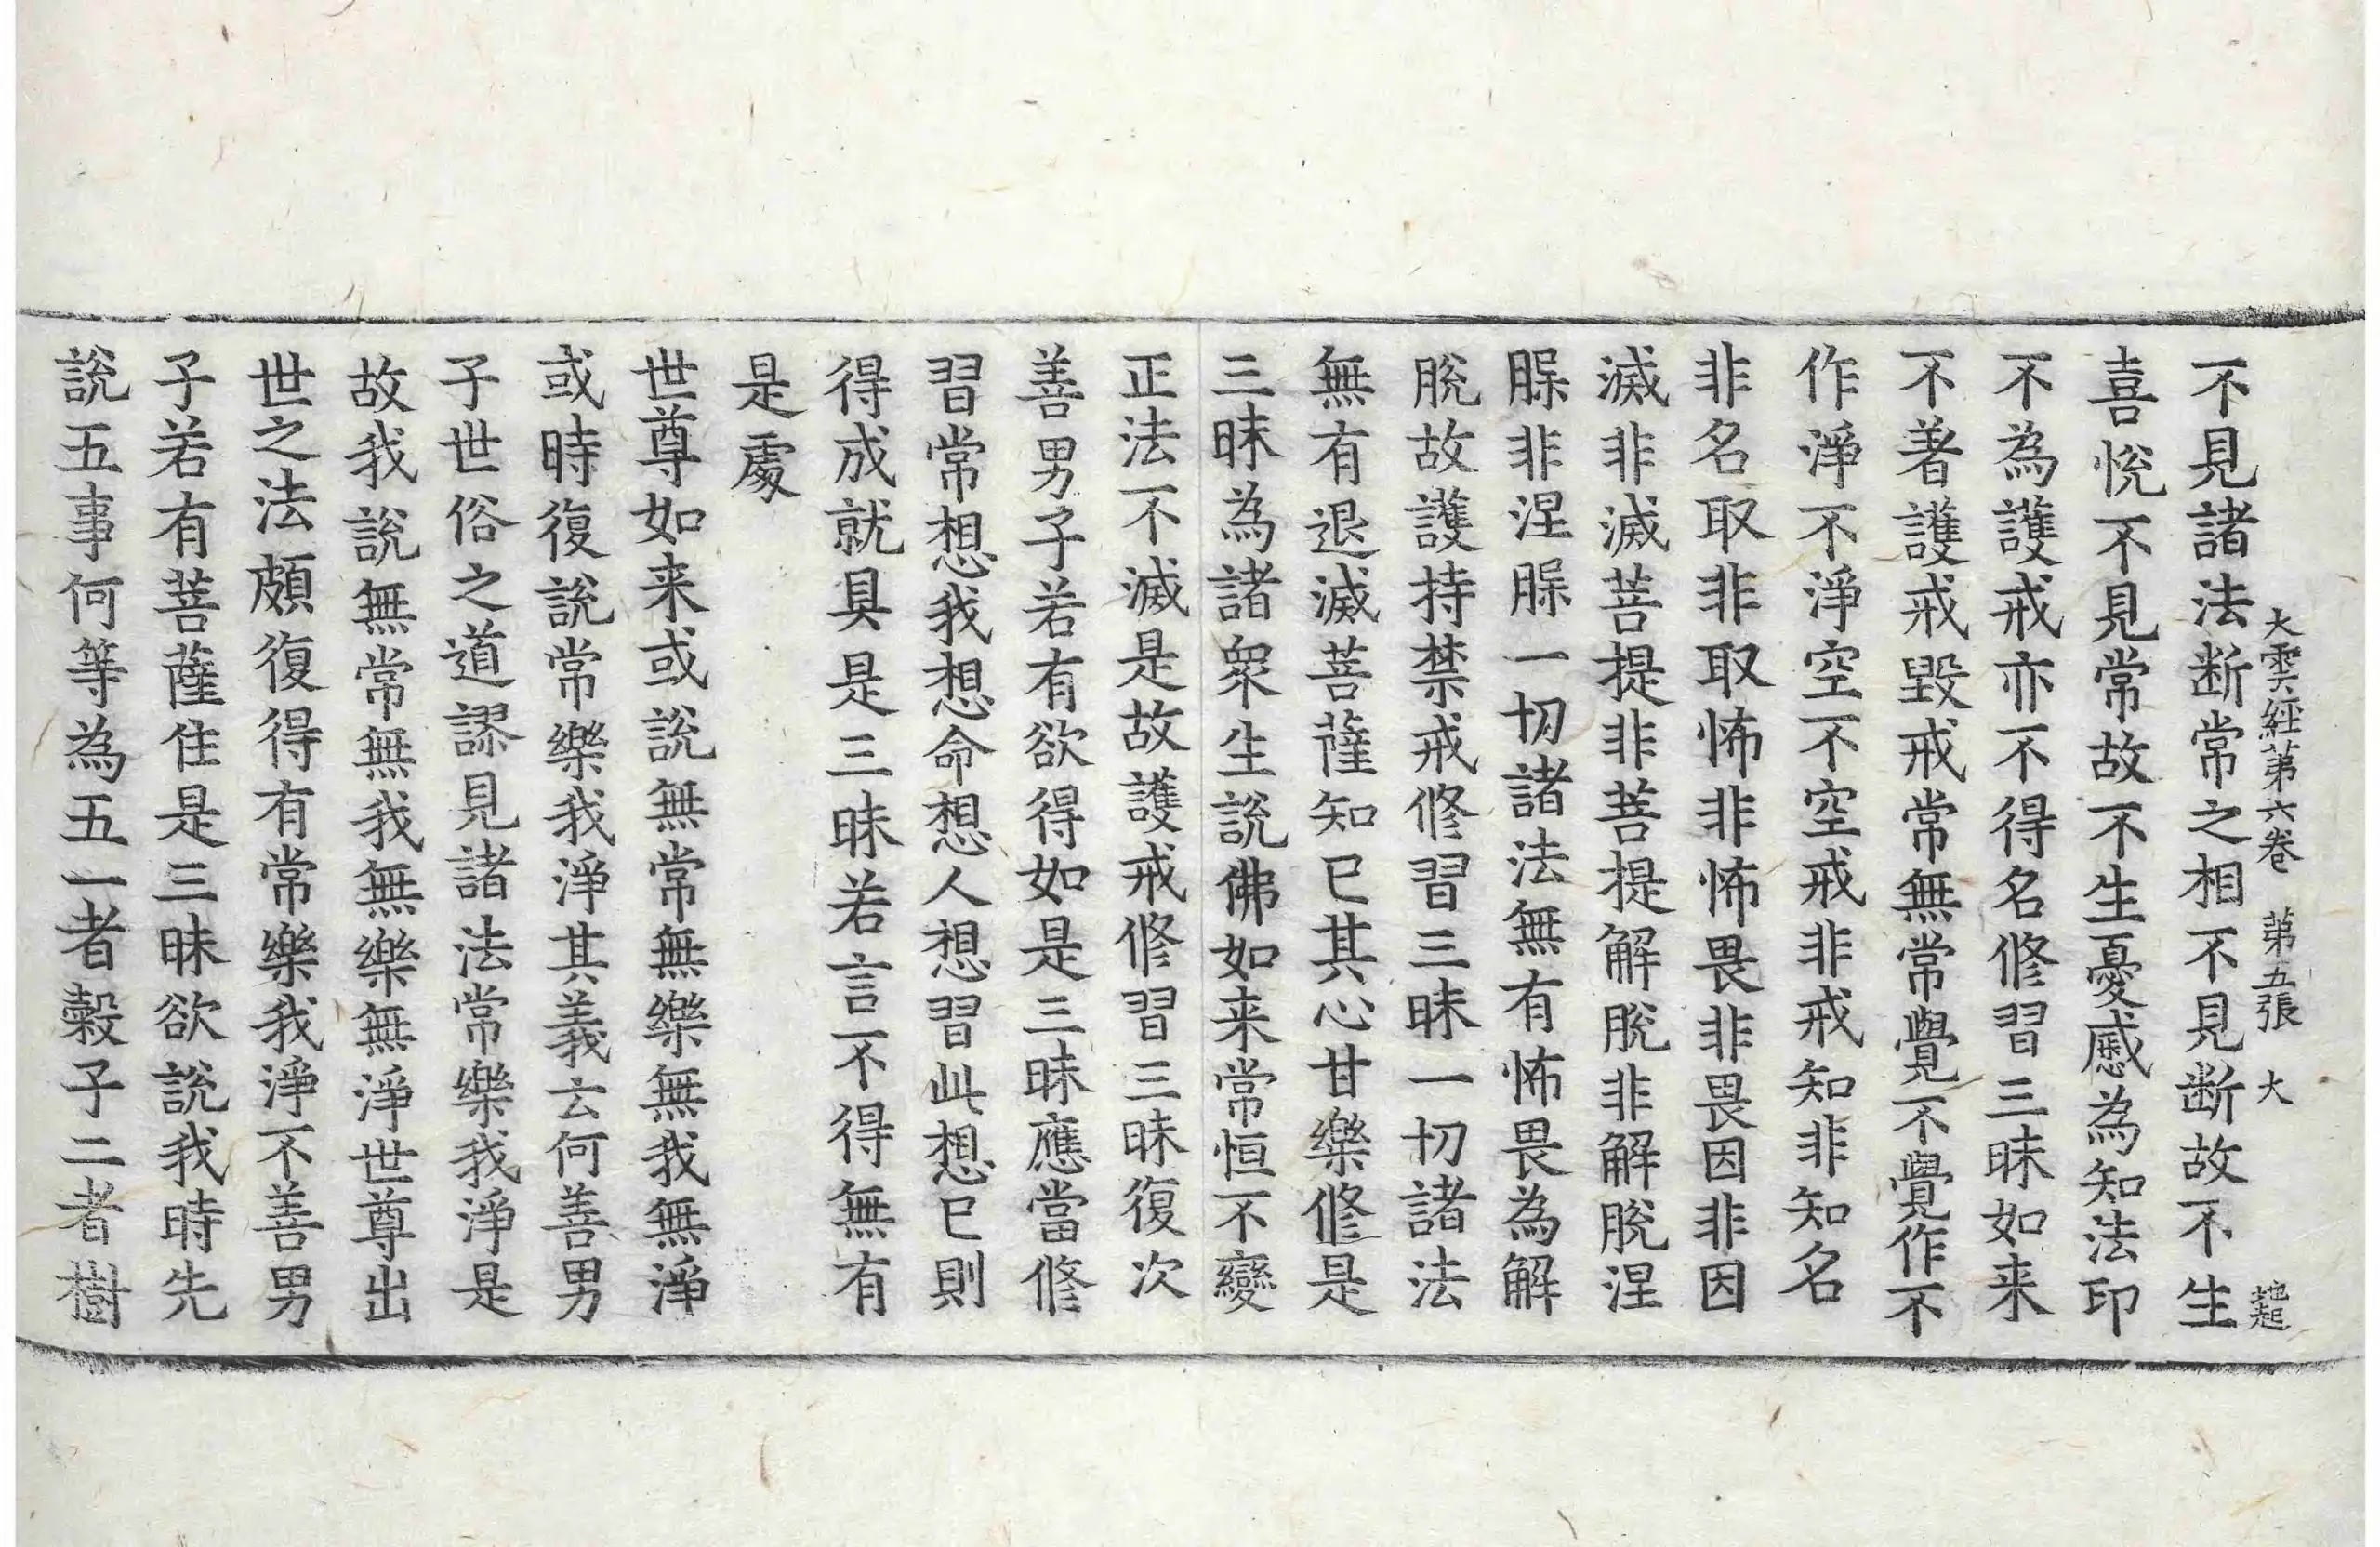 大雲經第六卷　第五張　大　趣
不見諸法断常之相不見断故不生
喜悅不見常故不生憂慼為知法印
不為護戒亦不得名修習三昧如来
不著護戒毀戒常無常覺不覺作不
作淨不淨空不空戒非戒知非知名
非名取非取怖非怖畏非畏因非因
滅非滅菩提非菩提解脫非解脫涅
䏶非涅䏶一切諸法無有怖畏為解
脫故護持禁戒修習三昧一切諸法
無有退滅菩薩知已其心甘樂修是
三昧為諸衆生說佛如来常恒不變
正法不滅是故護戒修習三昧復次
善男子若有欲得如是三昧應當修
習常想我想命想人想習此想已則
得成就具是三昧若言不得無有
是處
世尊如来或說無常無樂無我無淨
或時復說常樂我淨其義云何善男
子世俗之道謬見諸法常樂我淨是
故我說無常無我無樂無淨世尊出
世之法頗復得有常樂我淨不善男
子若有菩薩住是三昧欲說我時先
說五事何等為五一者穀子二者樹